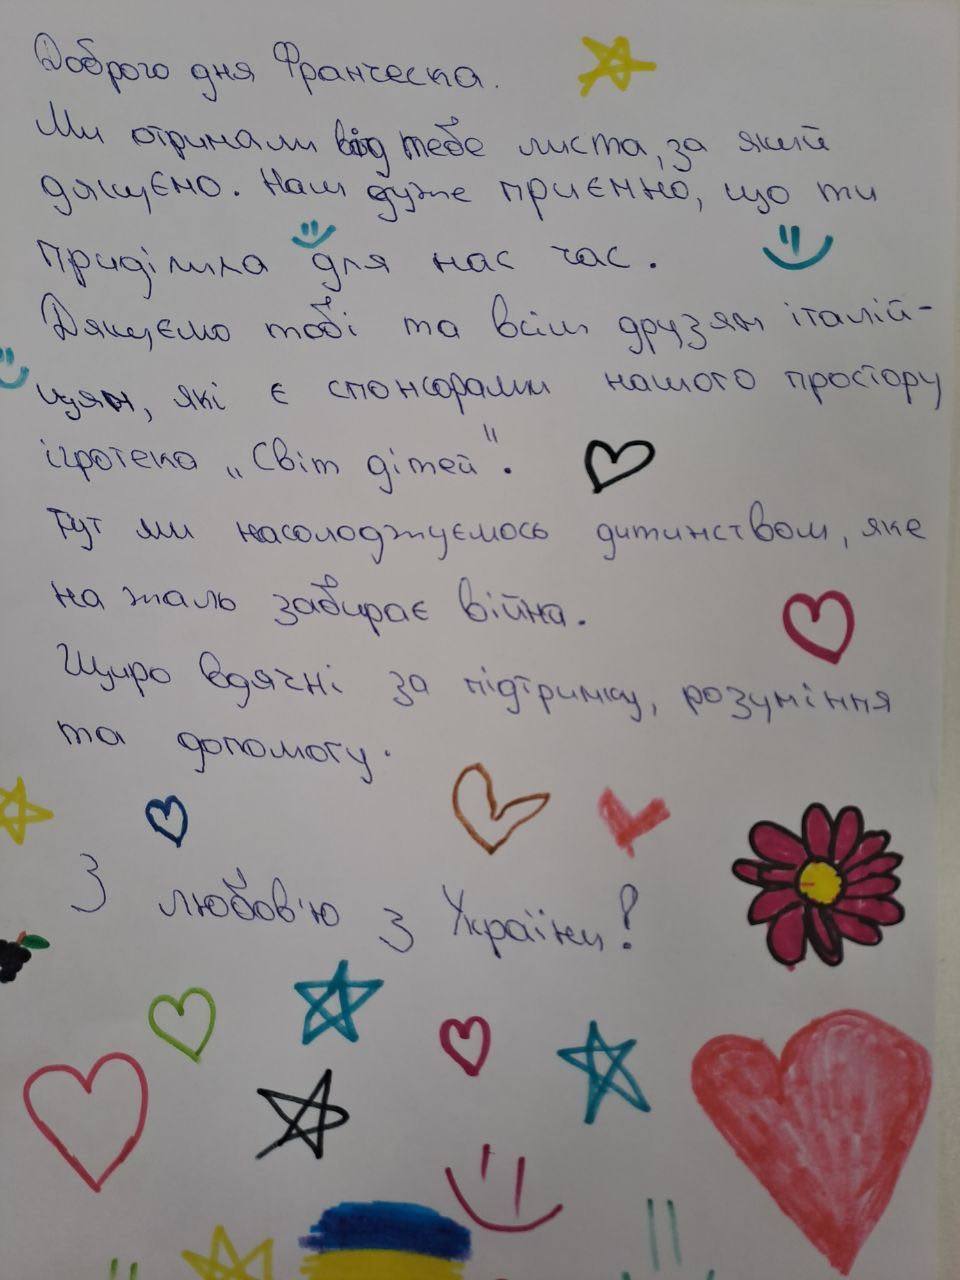 Доброго дня Франческа.
Ми отримали від тебе листа, за який
дякуємо. Нам дуже приємно, що ти
приділила для нас час.
Дякуємо тобі та всім друзям італій-
цям, які є спонсорами нашого простору
ігротека „Світ дітей".
Тут ми насолоджуємось дитинством, яке
на жаль забирає війна.
Щиро вдячні за підтримку, розуміння
та допомогу.
З любов'ю з України!